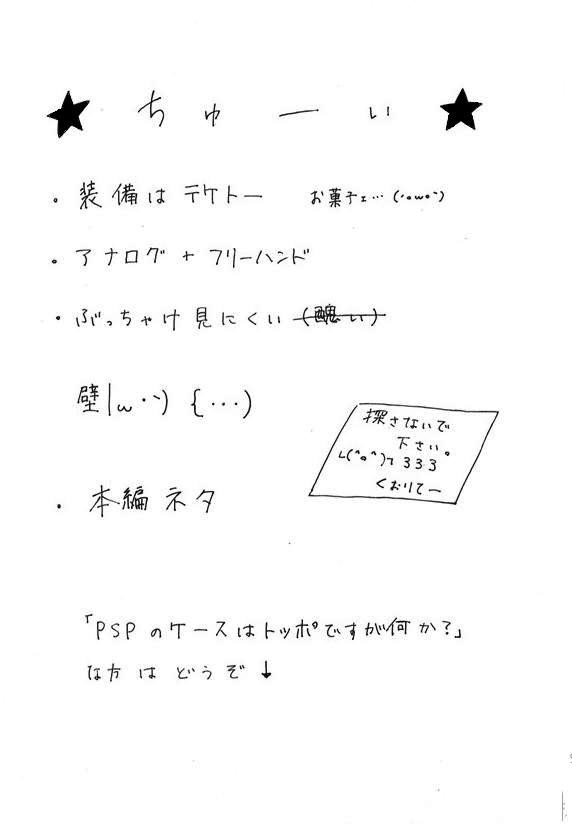 ★ ちゅーい ★
・装備はテケトー お菓子ェ…(´・ω・`)
・アナログ+フリーハンド
・ぶっちゃけ見にくい(醜い)
壁|ω・`) {…)
探さないで
下さい。
ᒪ(^o^)┐333
くおりてー
・本編ネタ
「PSPのケースはトッポですが何か?」
な方はどうぞ↓